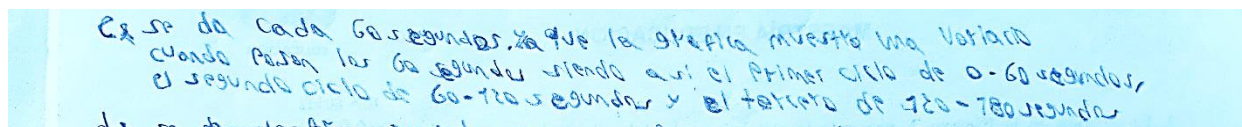 C: se da cada 60 segundos. Ya que la grafica muestra una variacio
cuando pasan los 60 segundos siendo asi el primer ciclo de 0-60 segundos,
el segundo ciclo de 60-120 segundos y el tercero de 120-180 segundos